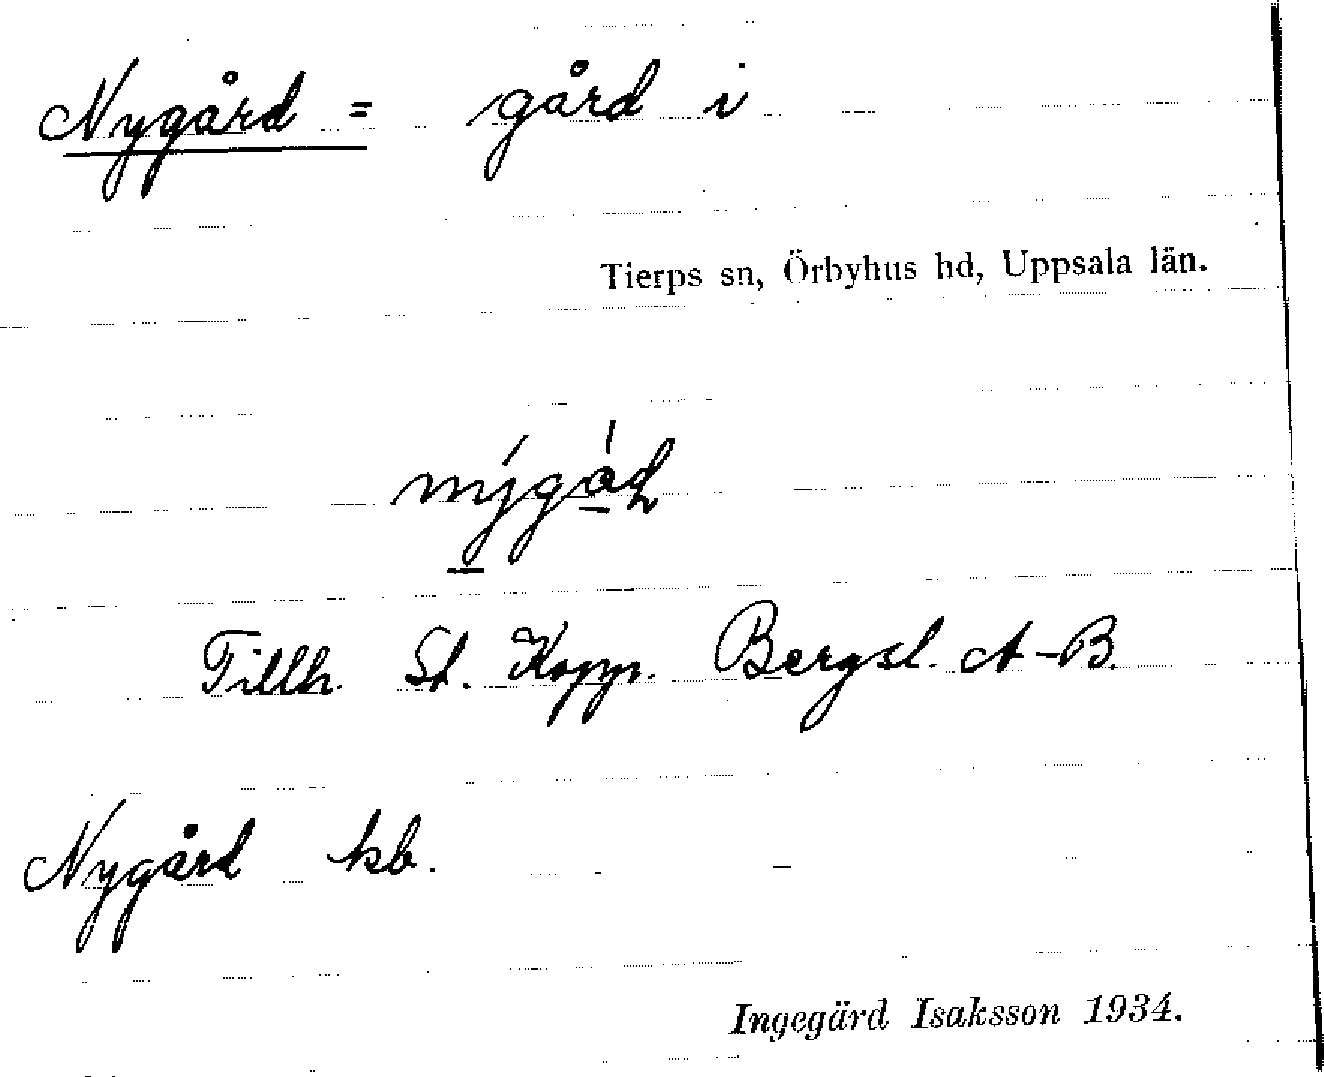 Nygård = gård i
Tierps sn, Örbyhus hd, Uppsala län.
Tillh. St. Kopp. Bergsl. A-B.
Nygård kb.
Ingegärd Isaksson 1934.